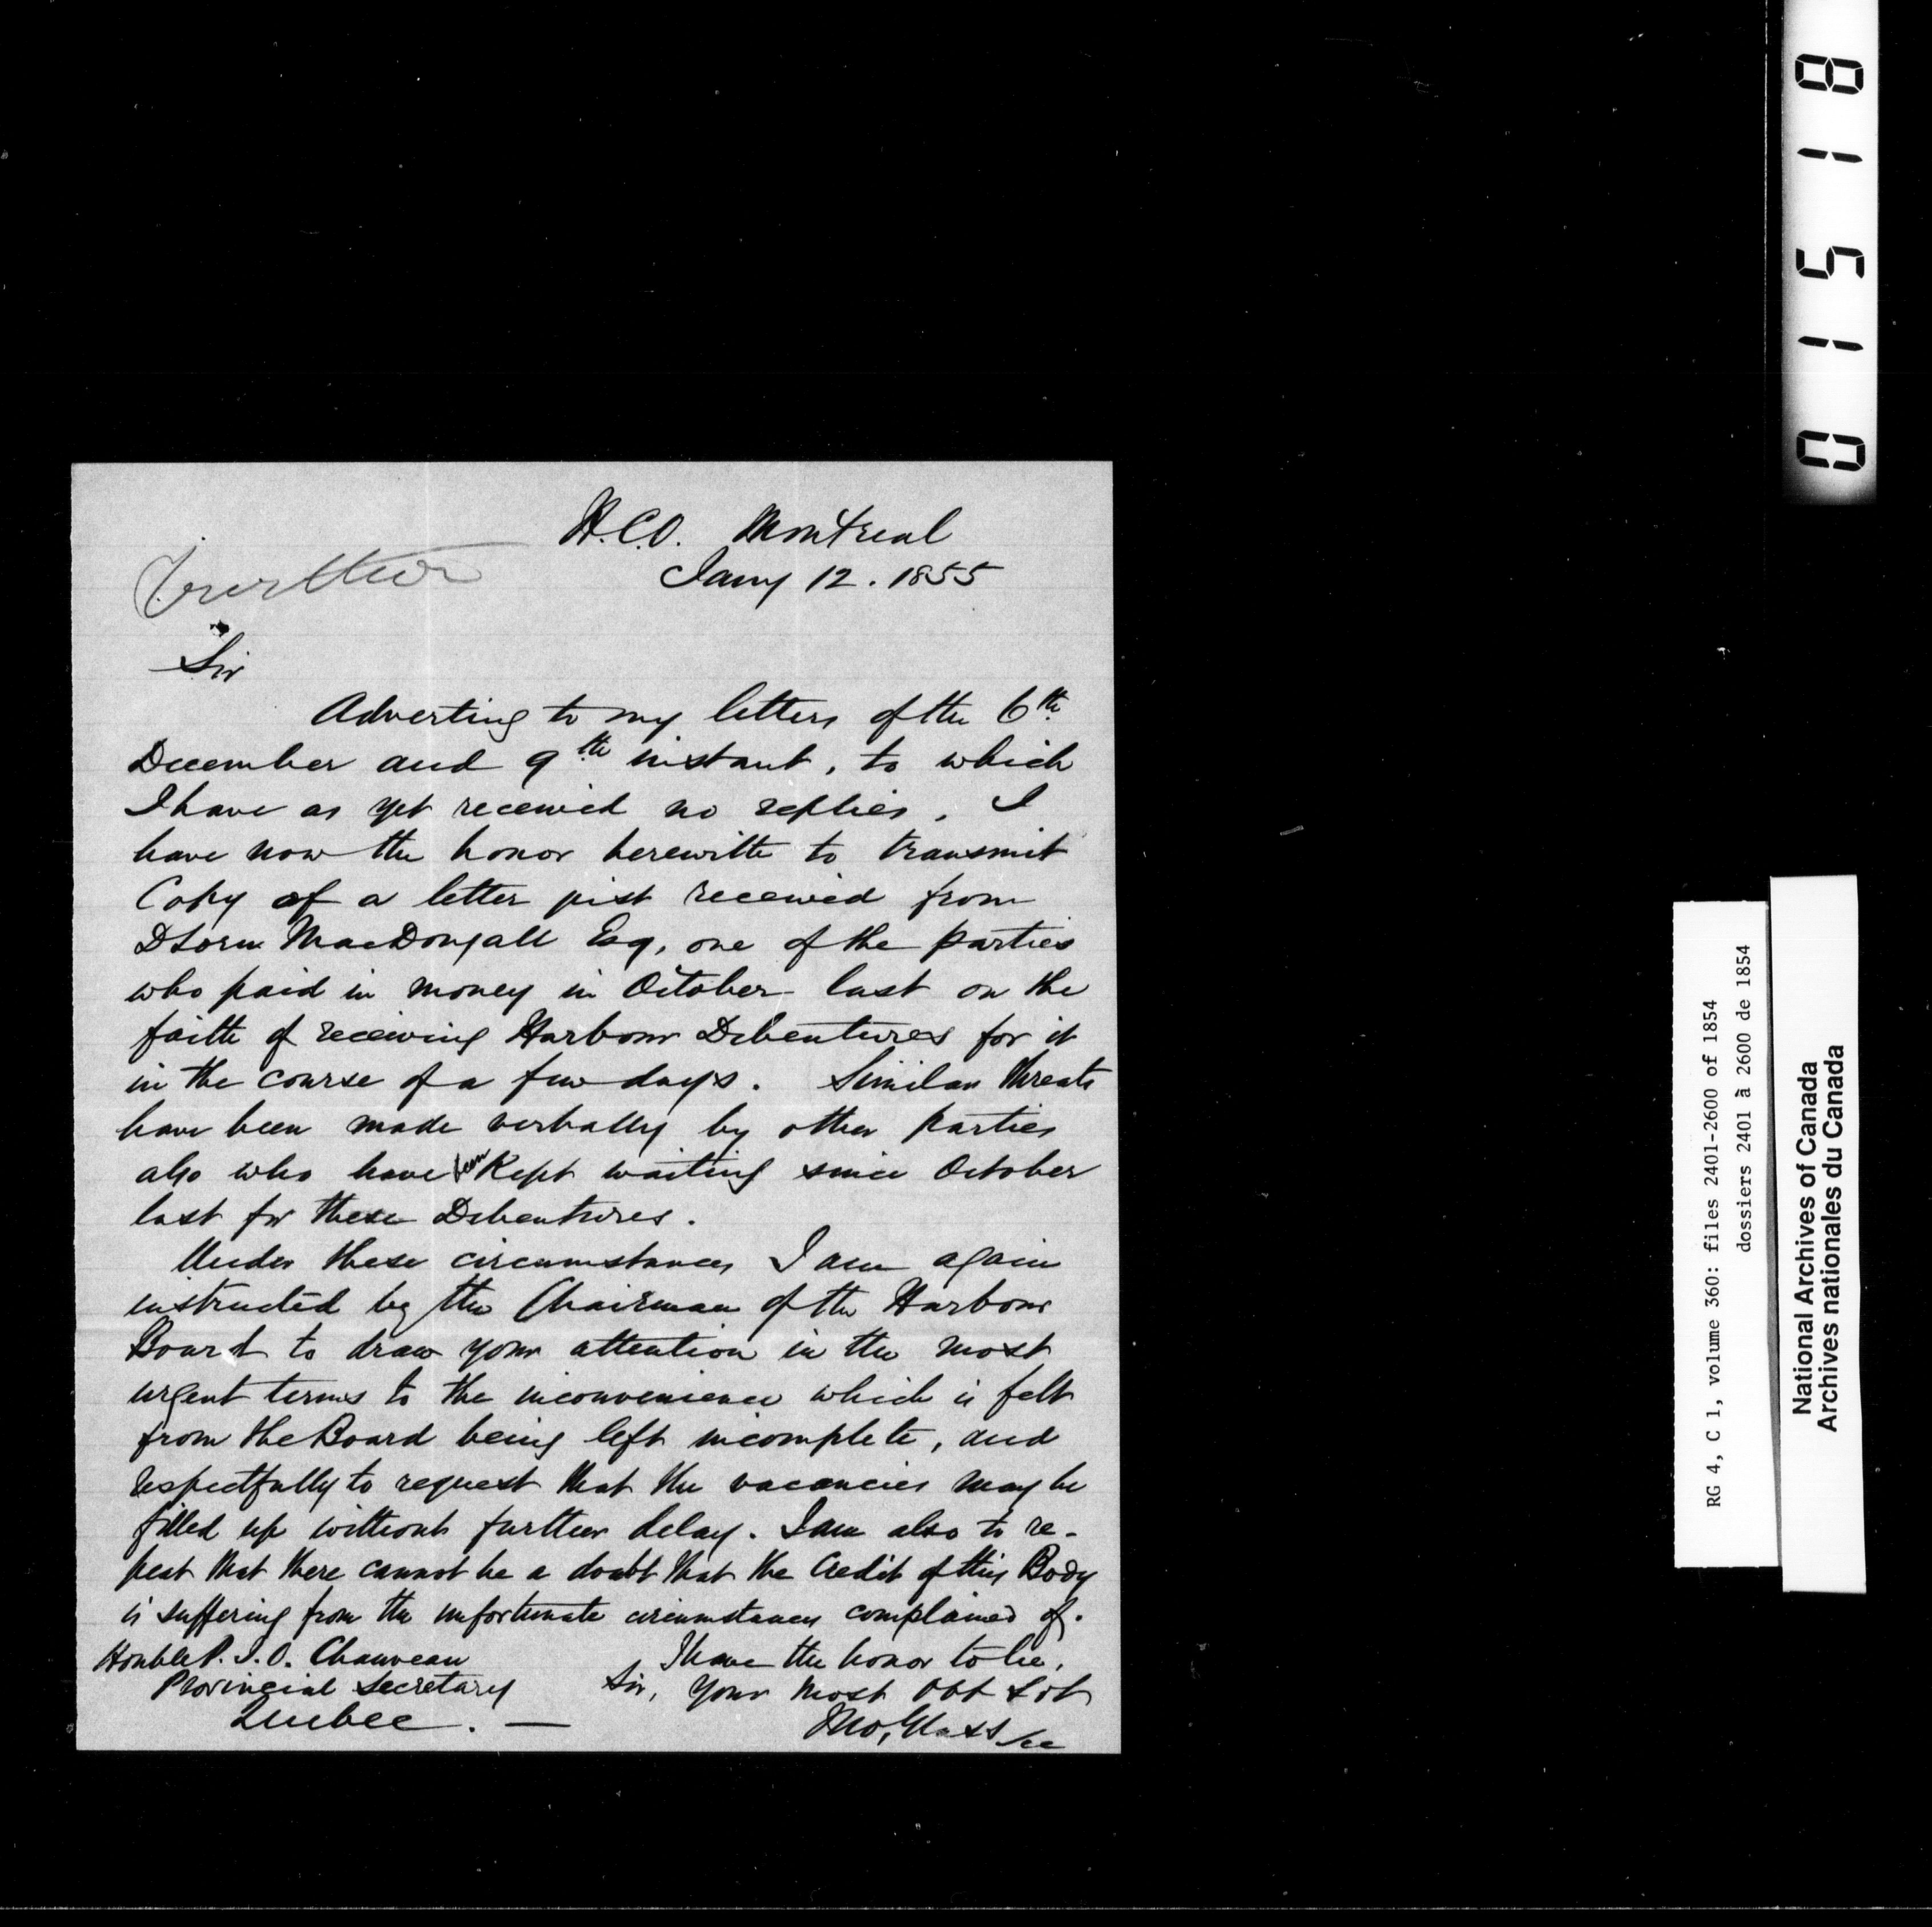 H.C.O. Montreal
Jany 12. 1855
further
Sir
Adverting to my letters of the 6th
December and 9th instant, to which
I have as yet received no replies, I
have now the honor herewith to transmit
Copy of a letter just received from
DLorn MacDougall Esq, one of the parties
who paid in money in October last on the
faith of receiving Harbour Debentures for it
in the course of a few days. Similar threats
have been made verbally by other parties
also who have been Kept waiting since October
last for these Debentures.
Under these circumstances I am again
instructed by the Chairman of the Harbour
Board to draw your attention in the most
urgent terms to the inconvenience which is felt
from the Board being left incomplete, and
respectfully to request that the vacancies may be
filled up without further delay. I am also to re-
peat that there cannot be a doubt that the Credit of this Body
is suffering from the unfortunate circumstances complained of.
I have the honor to be,
Sir, Your most Obt Svt
Jno, Glass
Honble P. J. O. Chauveau
Provincial Secretary
Quebec. —
01518
RG 4, C 1, volume 360: files 2401-2600 of 1854
dossiers 2401 à 2600 de 1854
National Archives of Canada
Archives nationales du Canada